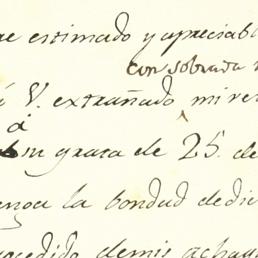 re estimado y apreciabl
con sobrada
á V. extrañado mi re
á
su grata de 25. de
enga la bondad de di
ocedido de mis achaq